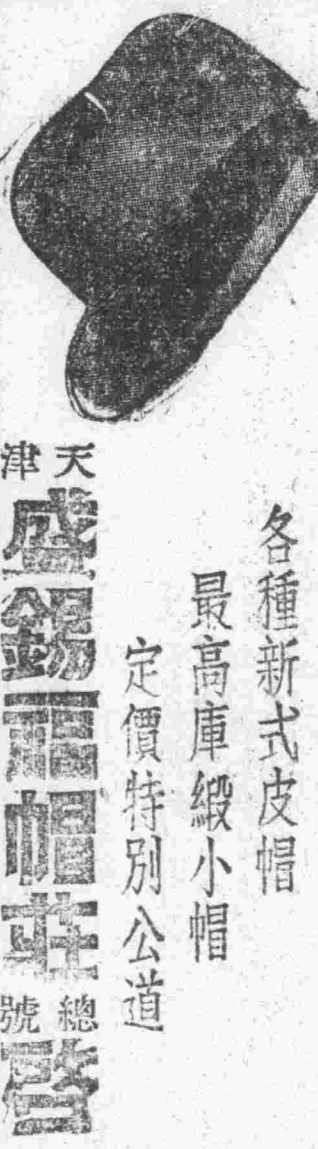 各種新式皮帽
最高庫緞小帽
定價特別公道
天津
盛錫福帽莊
總號
啓